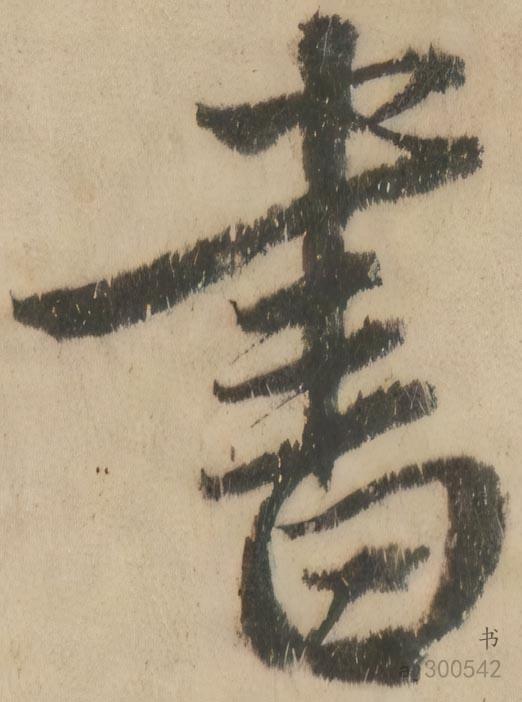 書
书
a_300542